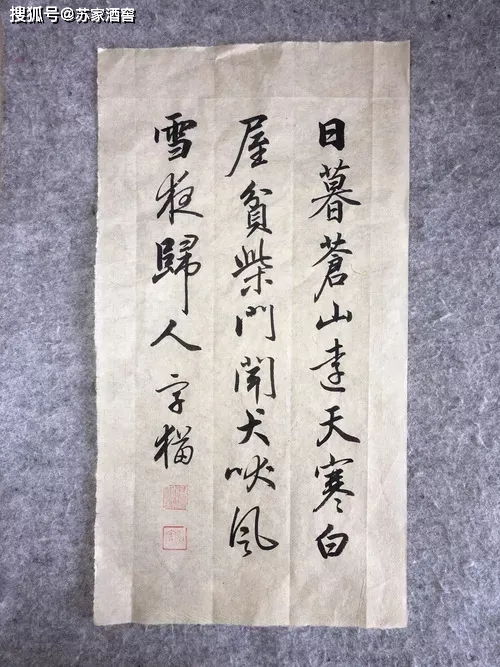 搜狐号@苏家酒窖
日暮蒼山遠天寒白
屋貧柴門聞犬吠風
雪夜歸人 字